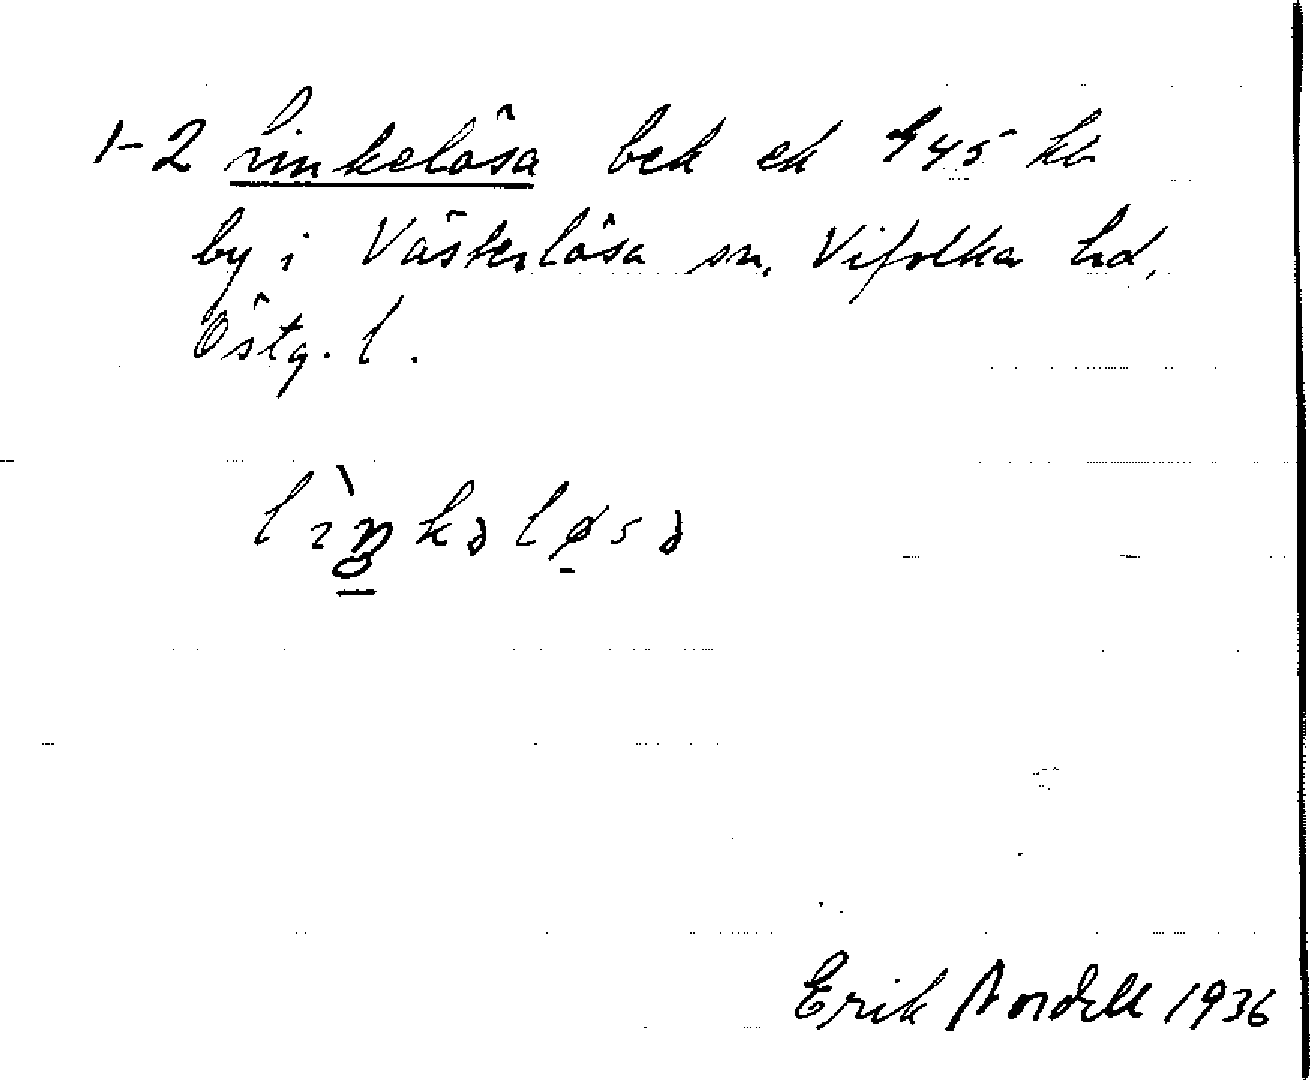 1-2 Linkelösa bek ek 945 kb
by i Västerlösa sn, Vifolka hd,
Östg. l.
lìŋkəløsə
Erik Nordell 1936